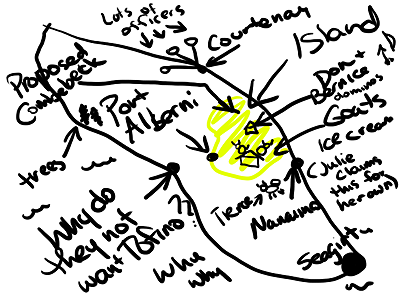 Lots of
officers
Courtenay
Island
Proposed
Comeback
Don +
Bernice
dominos
Port
Alberni
Goats
Ice cream
trees
(Julie
claims
this for
her own)
Nanaimo
Why do
they not
want Tofino
??
Why